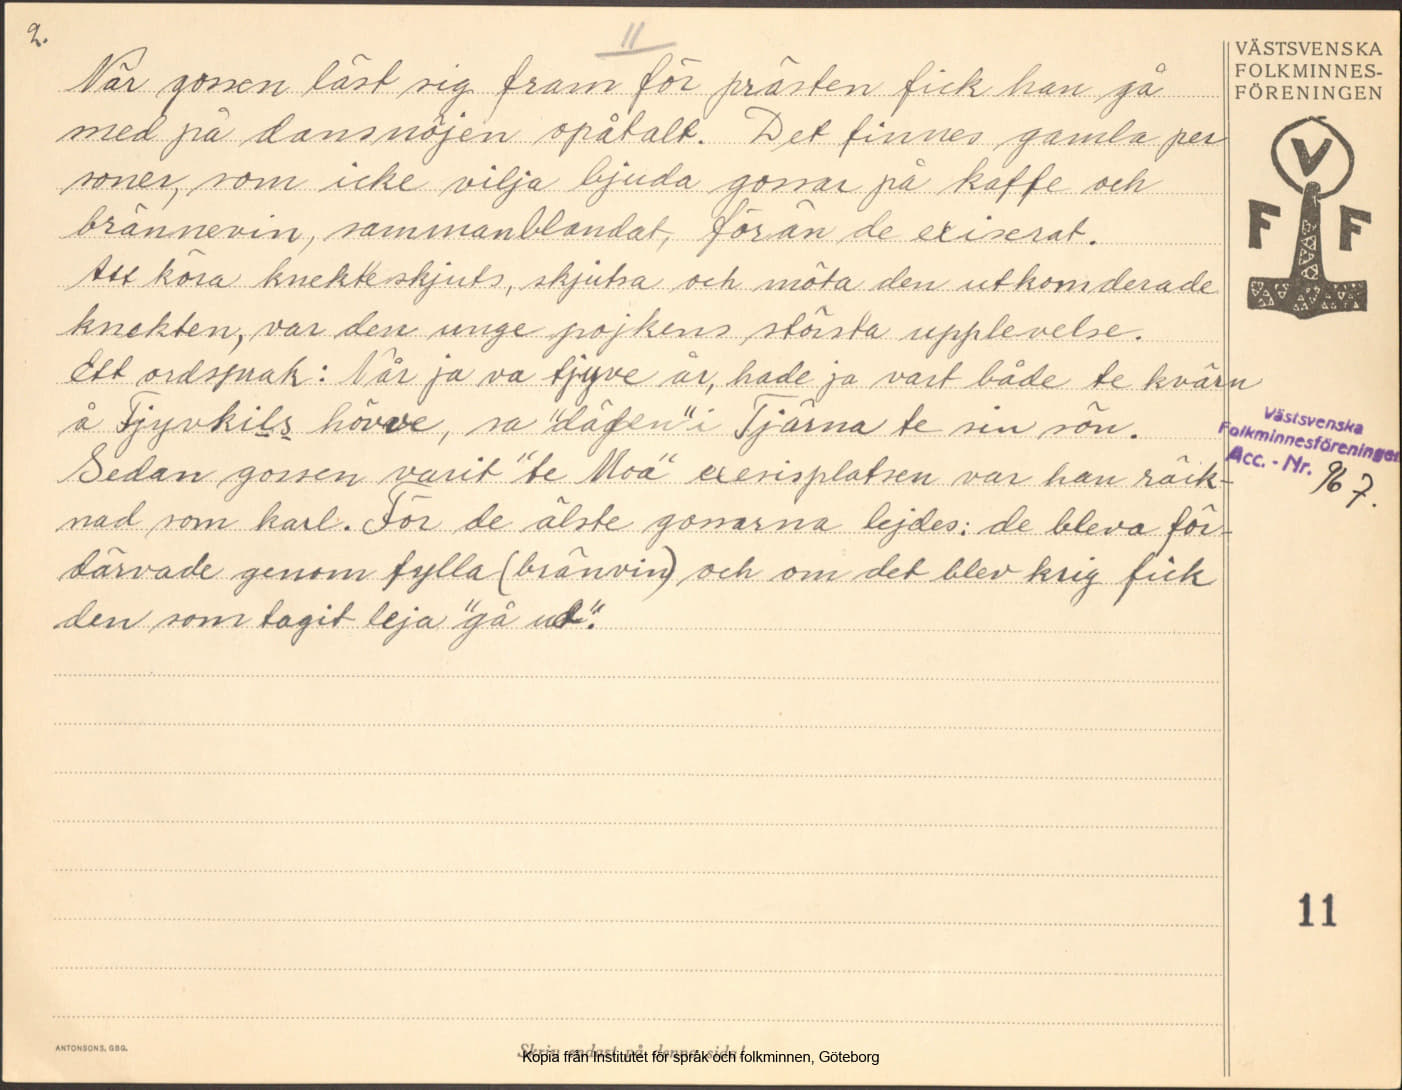 2.
11
När gossen läst sig fram för prästen fick han gå
med på dansnöjen opåtalt. Det finnes gamla per
soner, som icke vilja bjuda gossar på kaffe och
brännevin, sammanblandat, förän de exiserat.
Att köra knekteskjuts, skjutsa och möta den utkomderade
knekten, var den unge pojkens största upplevelse.
Ett ordspråk: Når ja va tjyve år, hade ja vart både te kvärn
å Tjyvkils hövve, sa "däfen" i Tjärna te sin sön.
Sedan gossen varit "te Moa" exersisplatsen var han räck-
nad som karl. För de älste gossarna lejdes: de bleva för-
därvade genom fylla (bränvin) och om det blev krig fick
den som tagit leja "gå ut".
VÄSTSVENSKA
FOLKMINNES-
FÖRENINGEN
V
F F
Västsvenska
Folkminnesföreningen
Acc. - Nr. 967.
11
ANTONSONS, GBG.
Skriv endast på denna sida!
Kopia från Institutet för språk och folkminnen, Göteborg